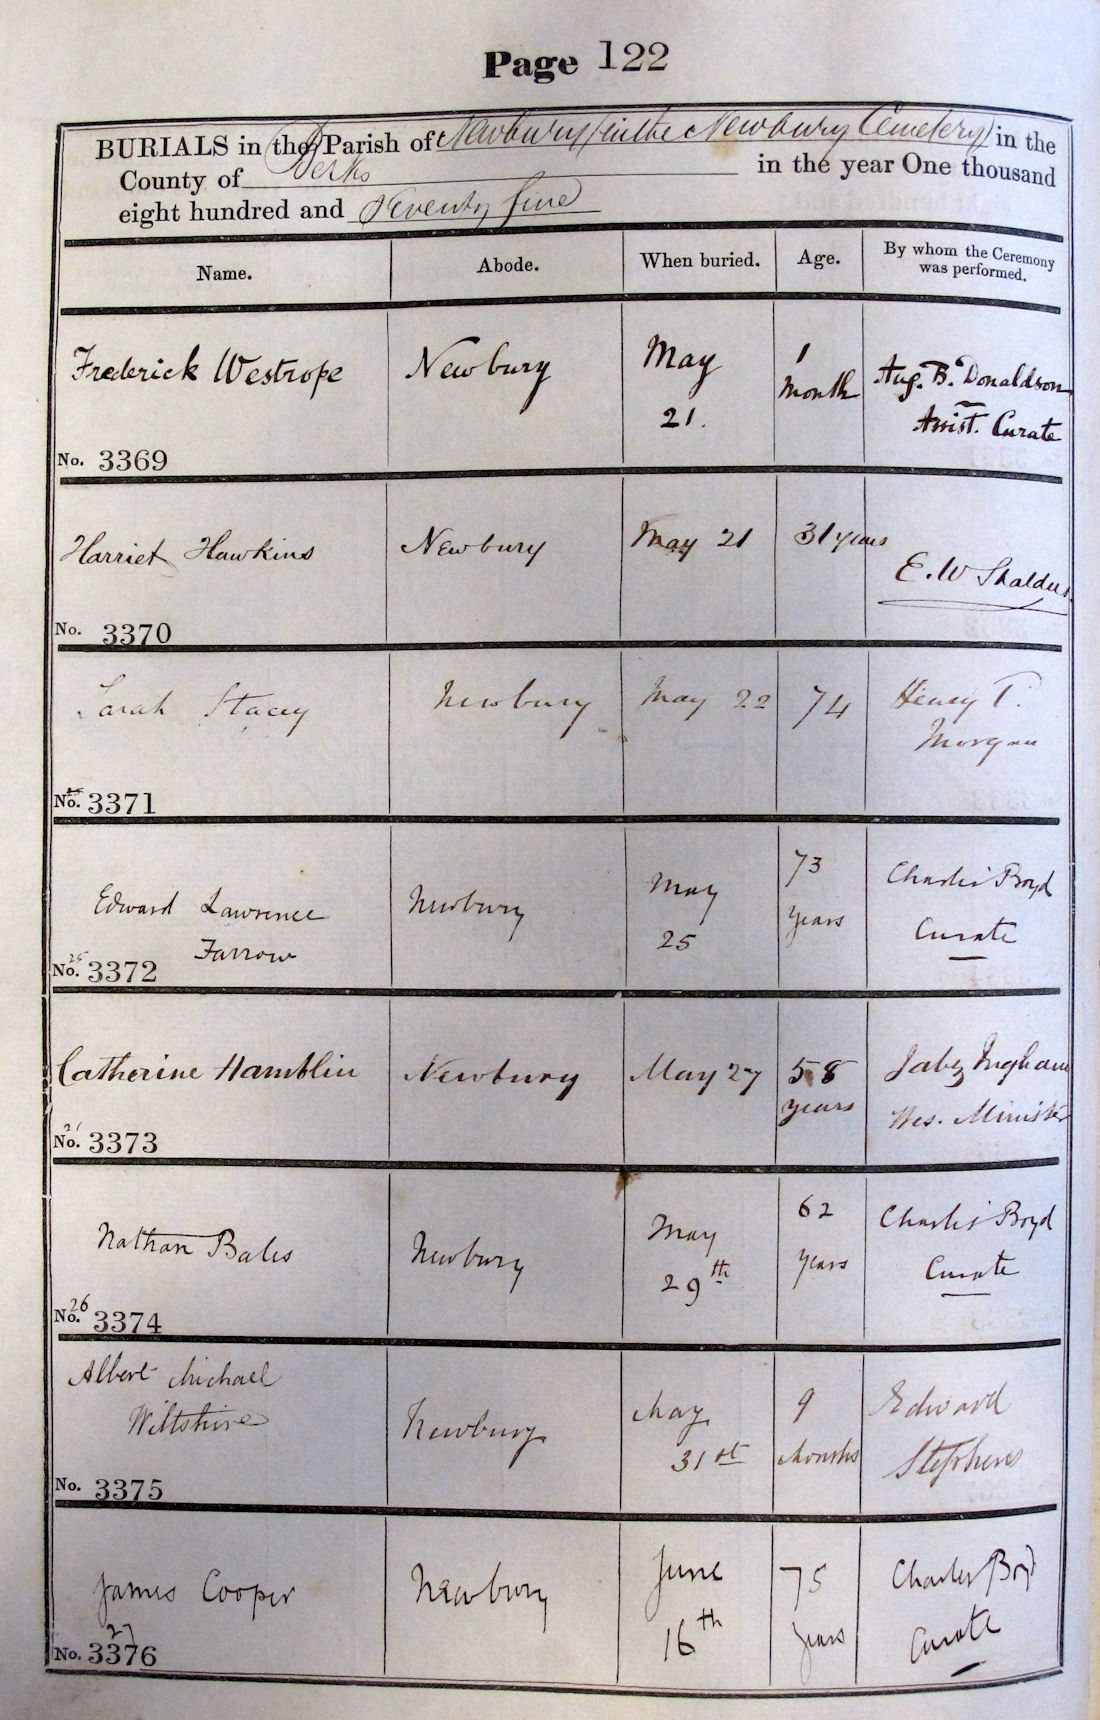 Page 122
BURIALS in the Parish of Newbury (in the Newbury Cemetery) in the
County of Berks in the year One thousand
eight hundred and Seventy five
Name. Abode. When buried. Age. By whom the Ceremony was performed.
Frederick Westrope Newbury May 21. 1 Month Aug. B. Donaldson
Assist. Curate
No. 3369
Harriet Hawkins Newbury May 21 31 years E. W
No. 3370
Sarah Stacey Newbury May 22 74 Henry T.
Morgan
No. 3371
Edward Lawrence Newbury May 25 73 years Charles Boyd
Farrow Curate
No. 25 3372
Catherine Hamblin Newbury May 27 58 years Jabez Ingham
Wes. Minister
No. 3373
Nathan Bales Newbury May 29th 62 years Charles Boyd
Curate
No. 26 3374
Albert Michael
Wiltshire Newbury May 31st 9 Months Edward
Stephens
No. 3375
James Cooper Newbury June 16th 75 years Charles Boyd
27 Curate
No. 3376